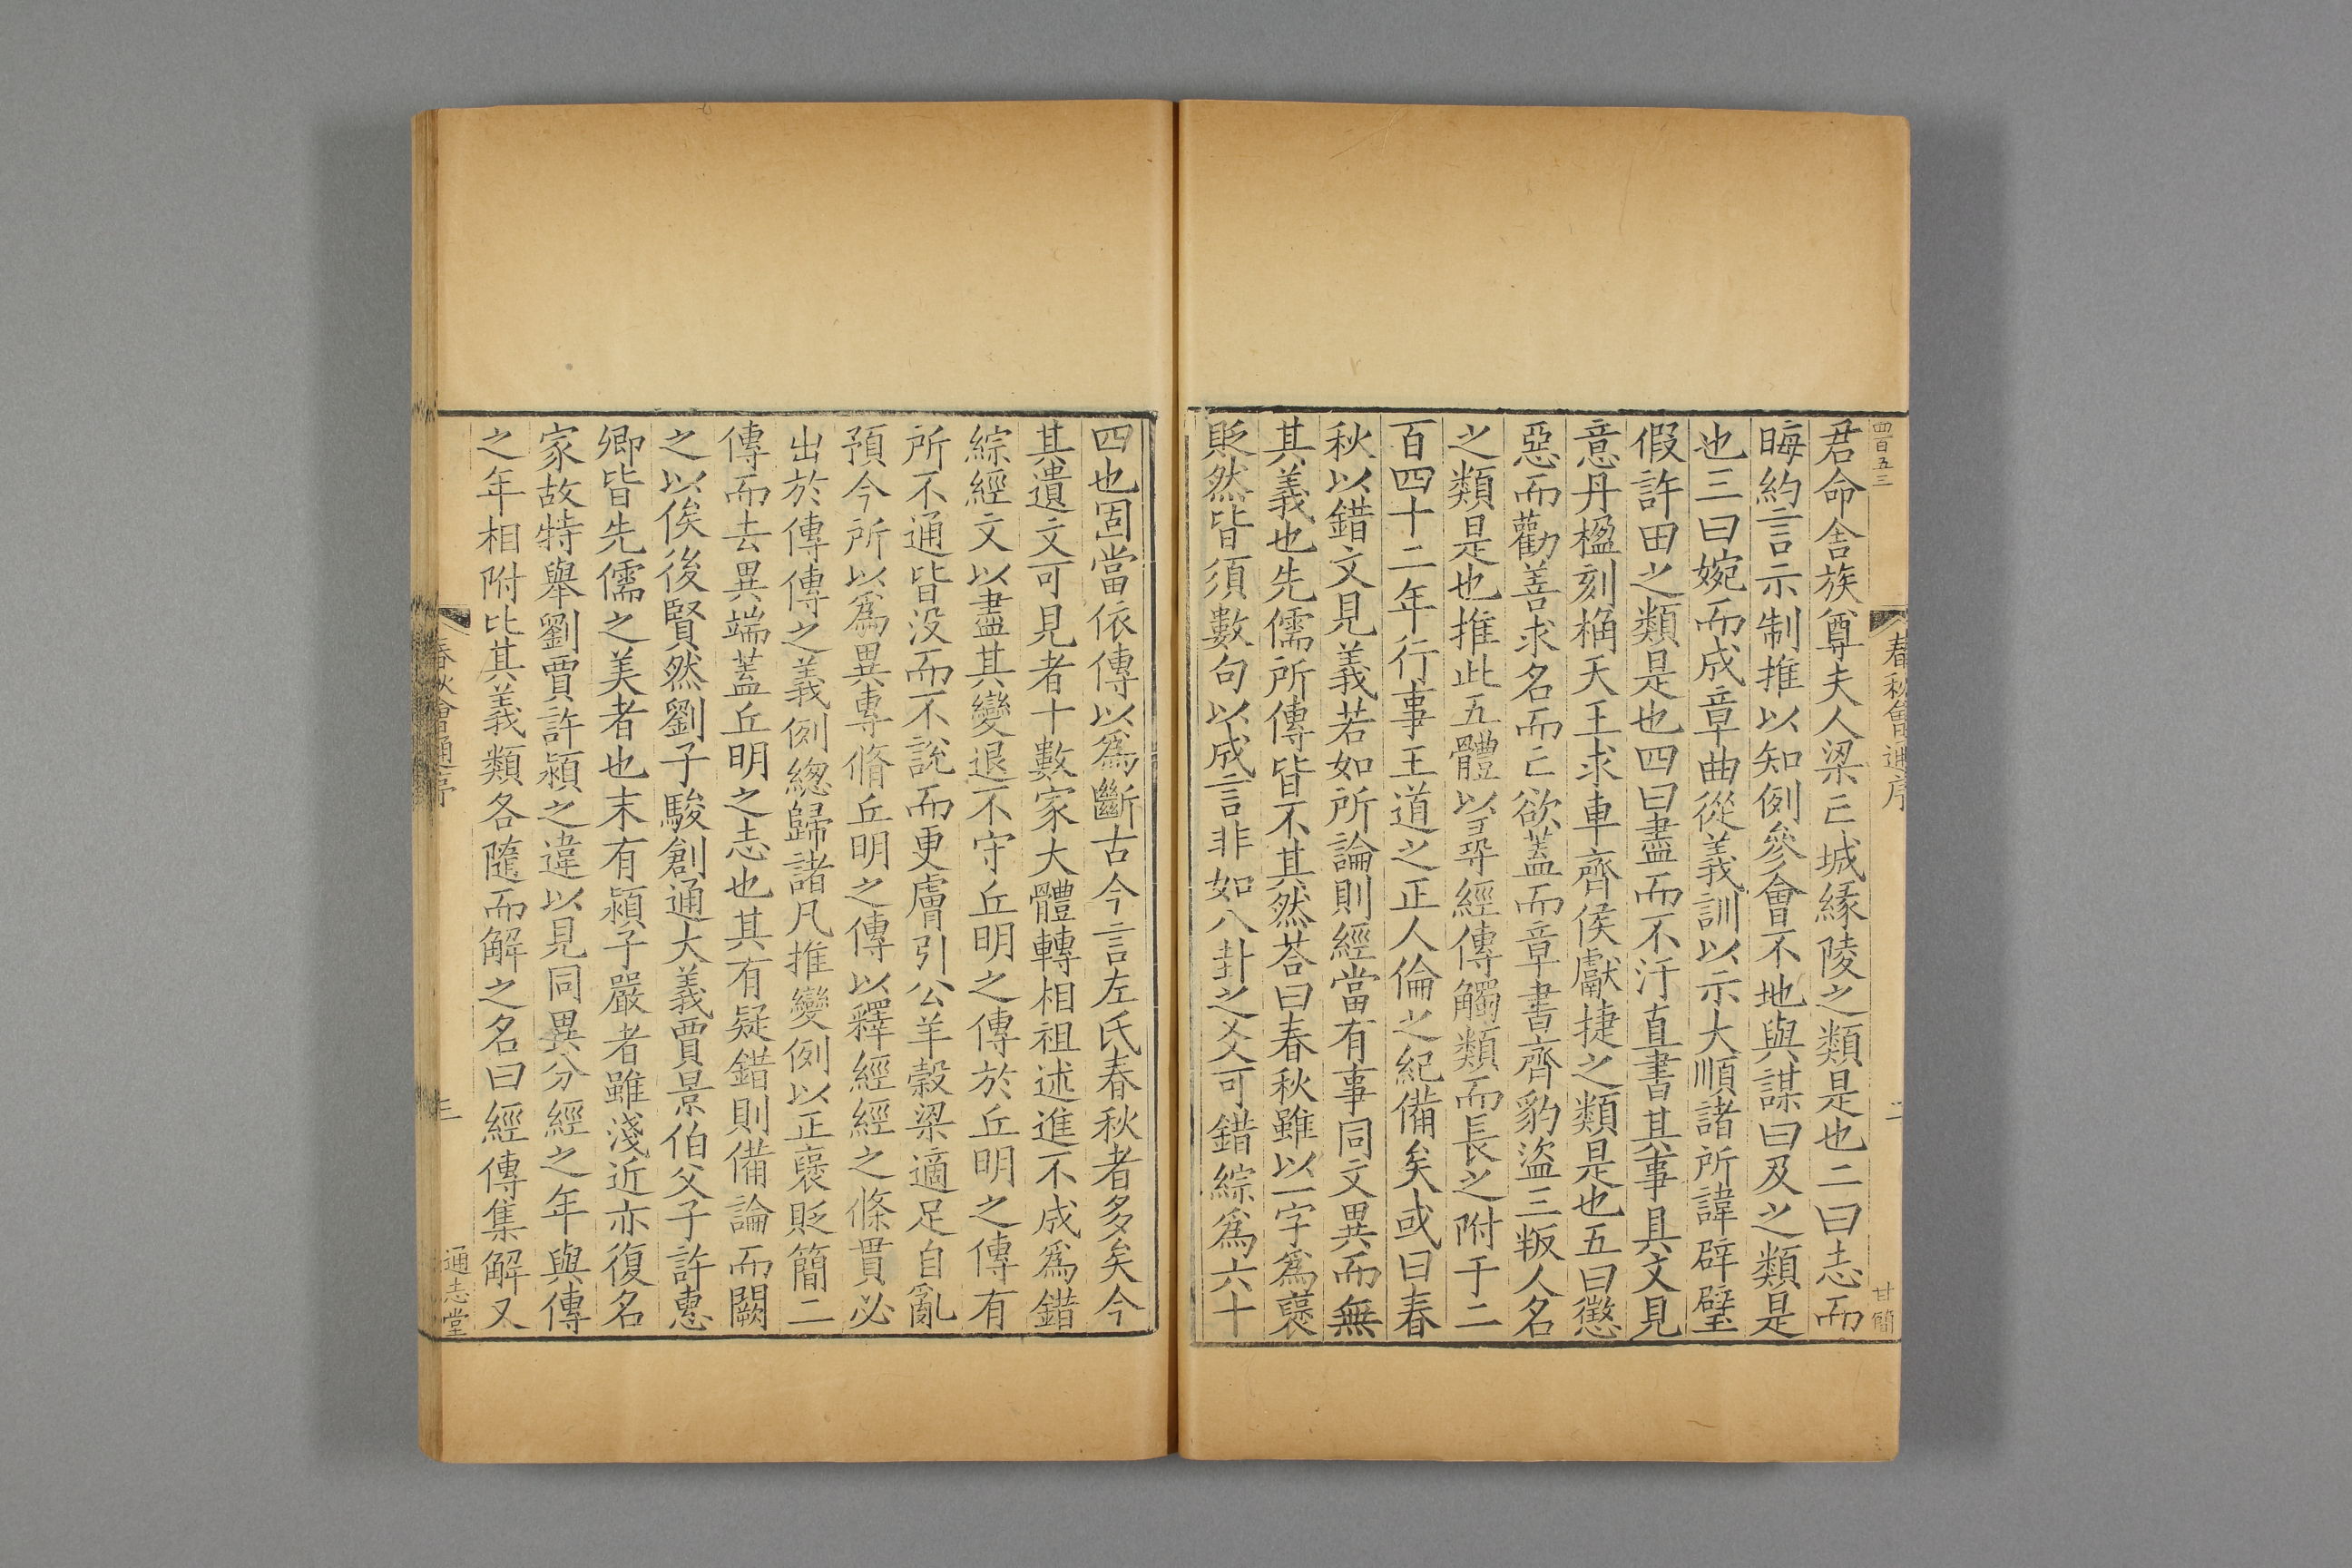 四百五三
春秋會通序
二
甘簡
君命舍族尊夫人梁亡城緣陵之類是也二曰志而
晦約言示制推以知例參會不地與謀曰及之類是
也三曰婉而成章曲從義訓以示大順諸所諱辟璧
假許田之類是也四曰盡而不汙直書其事具文見
意丹楹刻桷天王求車齊侯獻捷之類是也五曰懲
惡而勸善求名而亡欲蓋而章書齊豹盜三叛人名
之類是也推此五體以尋經傳觸類而長之附于二
百四十二年行事王道之正人倫之紀備矣或曰春
秋以錯文見義若如所論則經當有事同文異而無
其義也先儒所傳皆不其然荅曰春秋雖以一字爲襃
貶然皆須數句以成言非如八卦之爻可錯綜爲六十
四也固當依傳以爲斷古今言左氏春秋者多矣今
其遺文可見者十數家大體轉相祖述進不成爲錯
綜經文以盡其變退不守丘明之傳於丘明之傳有
所不通皆没而不說而更膚引公羊穀梁適足自亂
預今所以爲異專脩丘明之傳以釋經經之條貫必
出於傳傳之義例緫歸諸凡推變例以正襃貶簡二
傳而去異端蓋丘明之志也其有疑錯則備論而闕
之以俟後賢然劉子駿創通大義賈景伯父子許惠
卿皆先儒之美者也末有潁子嚴者雖淺近亦復名
家故特舉劉賈許潁之違以見同異分經之年與傳
之年相附比其義類各隨而解之名曰經傳集解又
春秋會通序
三
通志堂